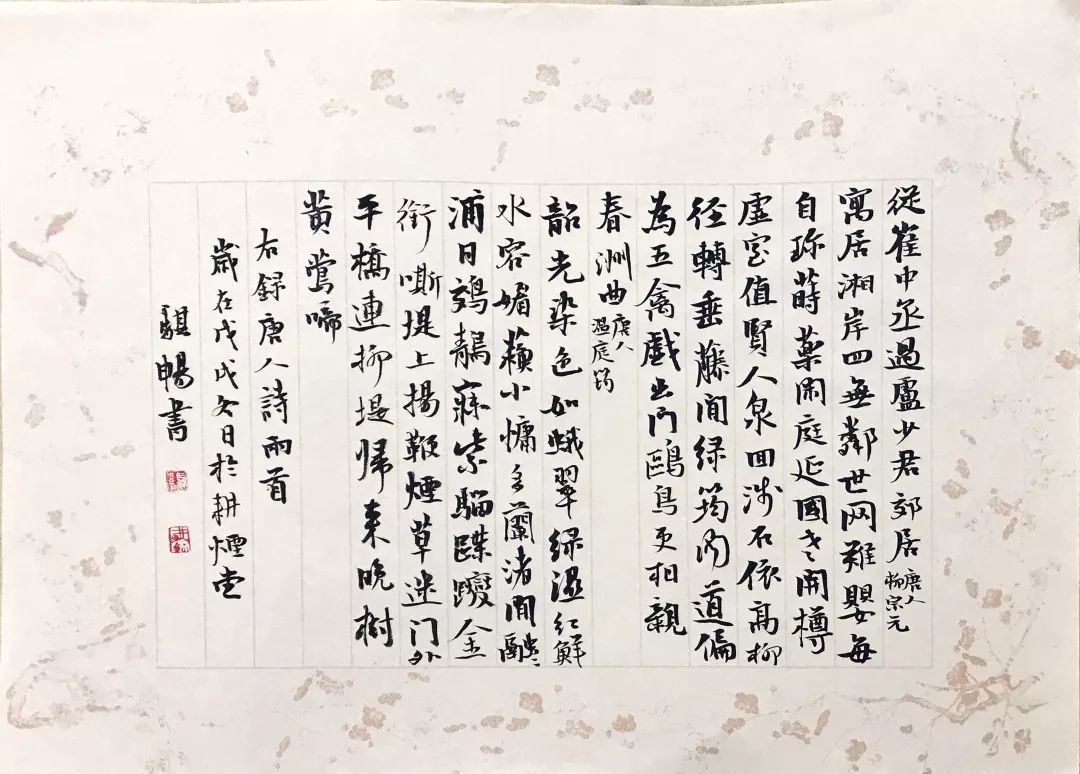 從崔中丞過盧少君郊居 唐人柳宗元
寓居湘岸四無鄰世网難嬰每
自珎蒔藥閑庭延國老開樽
虛室值賢人泉回淺石依高柳
徑轉垂藤间绿筠闻道偏
為五禽戲出門鷗鳥更相親
春洲曲 唐人温庭筠
韶光染色如蛾翠绿濕红鮮
水容媚蘓小慵多蘭渚閒融融
浦日鵁鶄寐紫騮蹀躞金
銜嘶堤上揚鞭煙草迷门外
平橋連柳堤歸来晚樹
黄鶯啼
右録唐人詩兩首
歲在戊戌冬日於耕煙堂
騏暢書